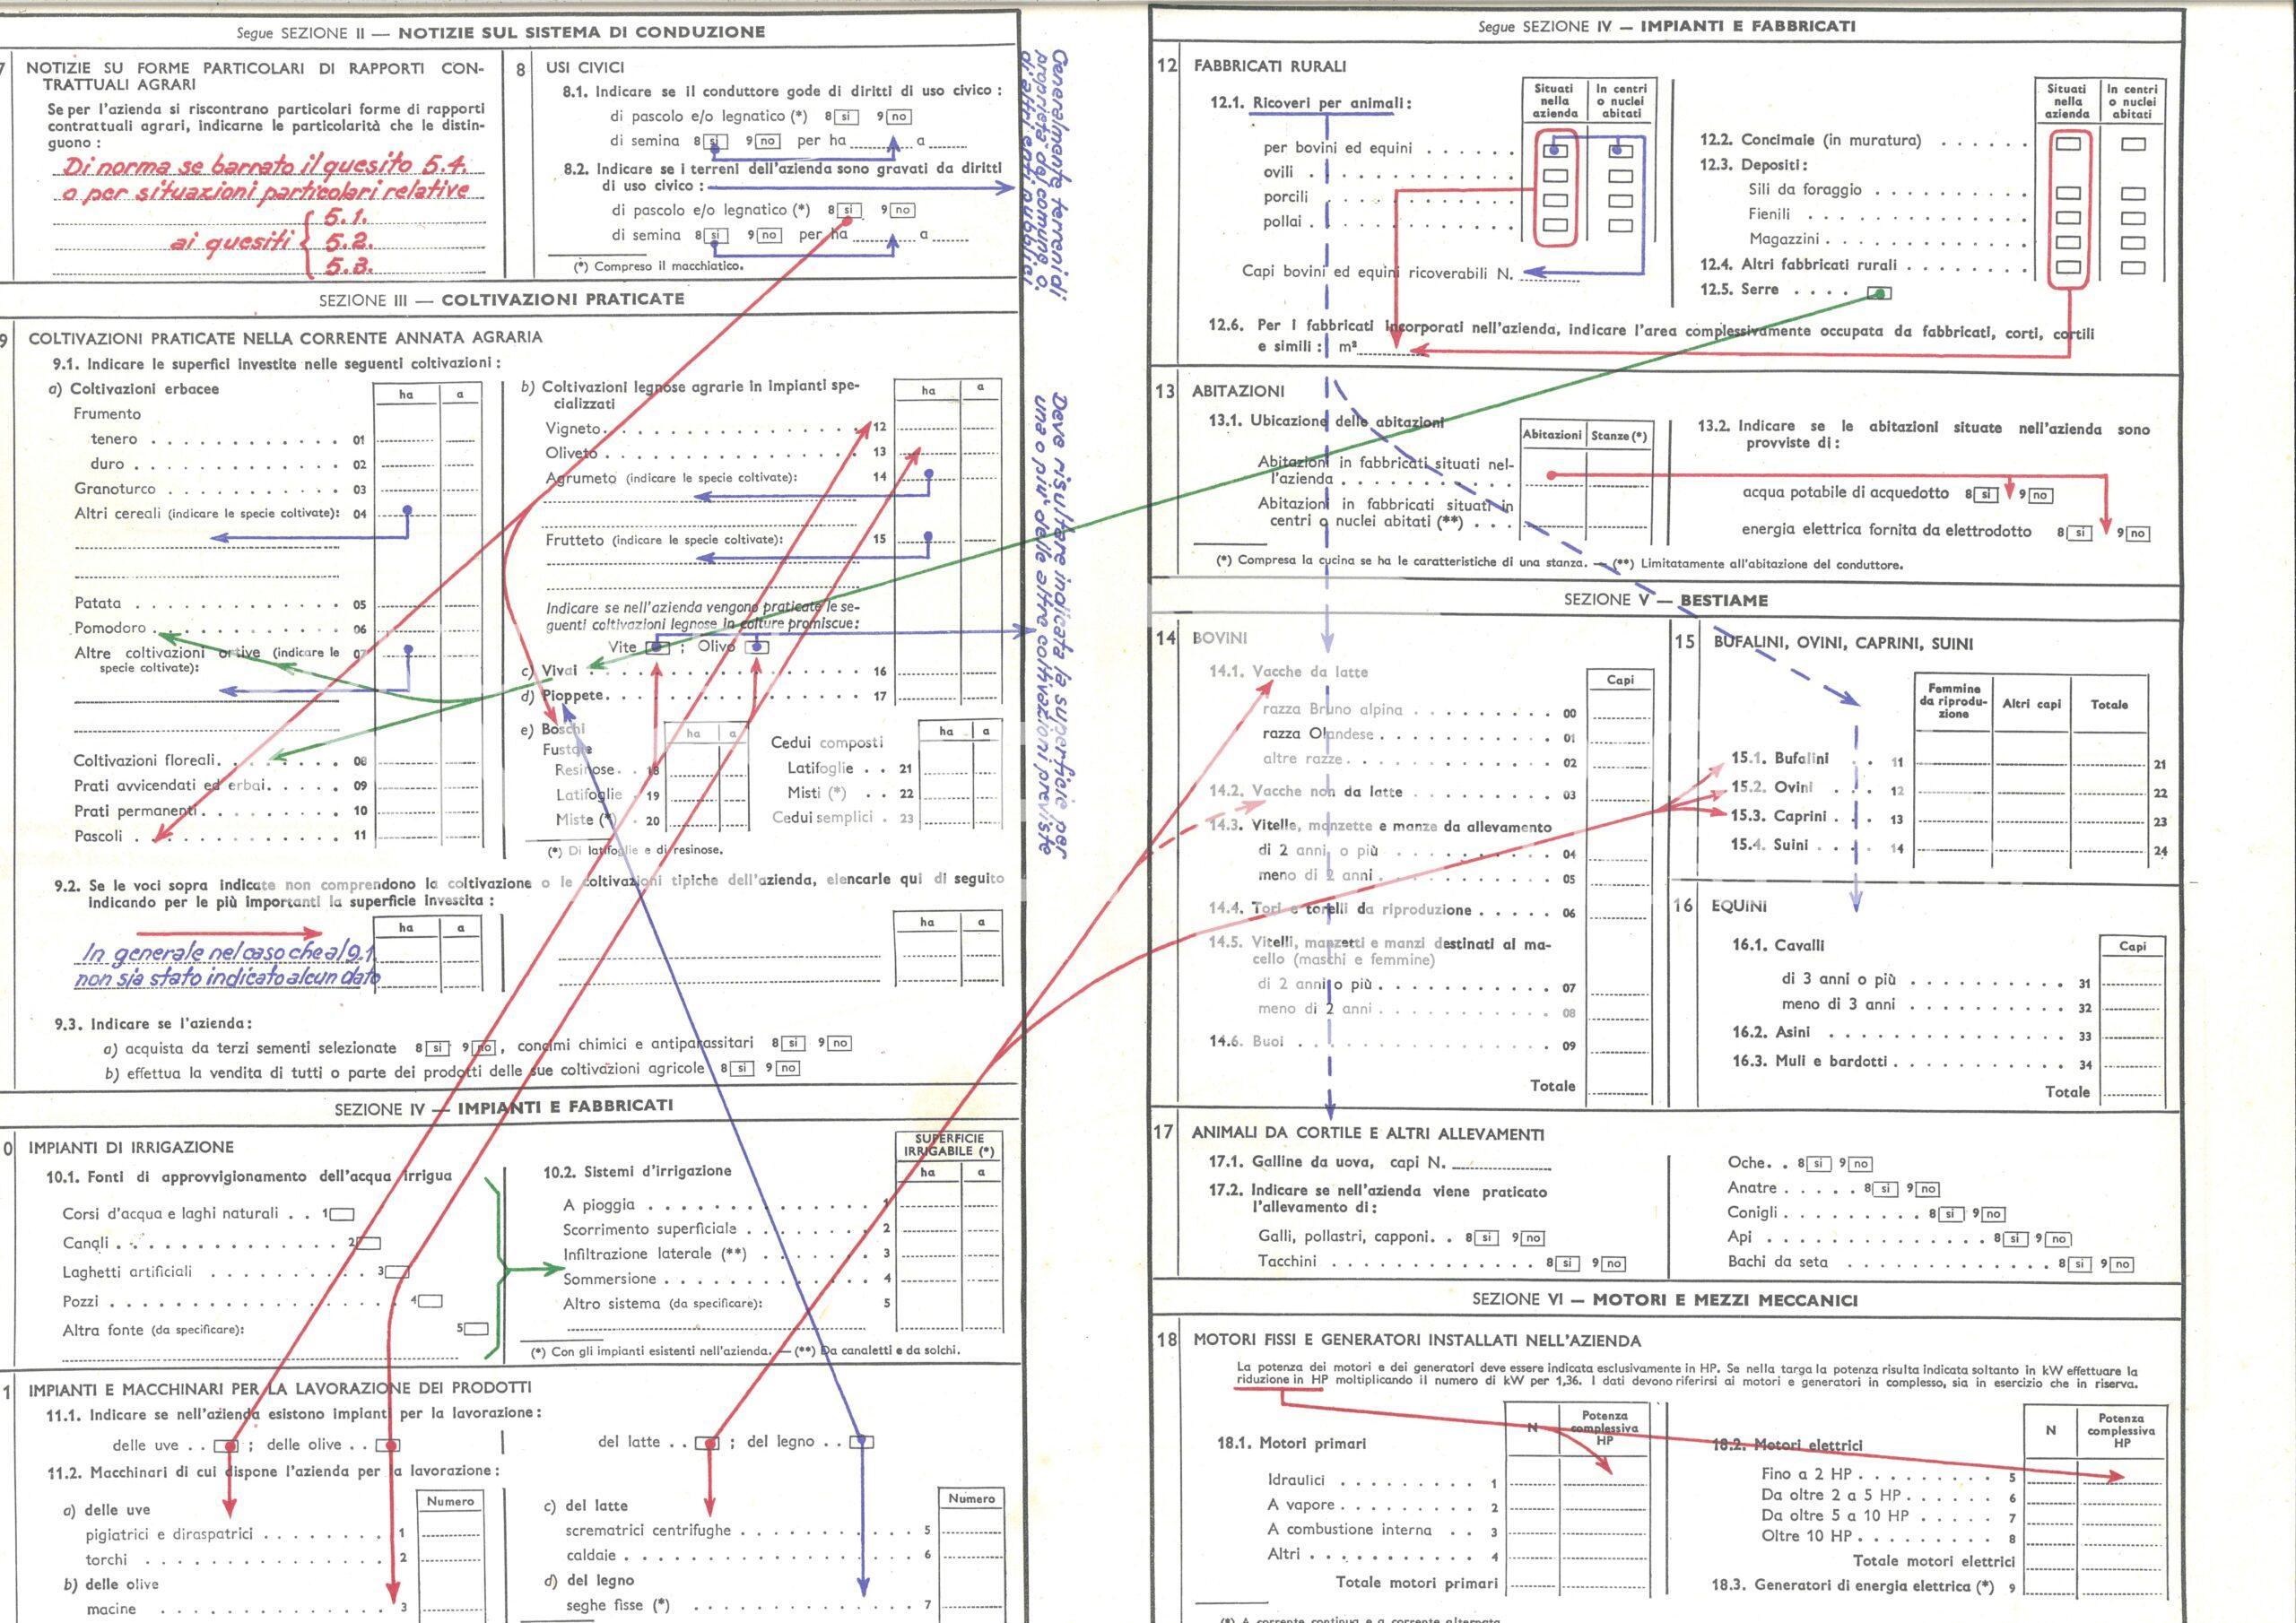 Segue SEZIONE II — NOTIZIE SUL SISTEMA DI CONDUZIONE
7 NOTIZIE SU FORME PARTICOLARI DI RAPPORTI CON-
TRATTUALI AGRARI
Se per l'azienda si riscontrano particolari forme di rapporti
contrattuali agrari, indicarne le particolarità che le distin-
guono :
Di norma se barrato il quesito 5.4.
o per situazioni particolari relative
5.1.
ai quesiti { 5.2.
5.3.
8 USI CIVICI
8.1. Indicare se il conduttore gode di diritti di uso civico :
di pascolo e/o legnatico (*) 8 si 9 no
di semina 8 si 9 no per ha ........ a ......
8.2. Indicare se i terreni dell'azienda sono gravati da diritti
di uso civico :
di pascolo e/o legnatico (*) 8 si 9 no
di semina 8 si 9 no per ha ........ a ......
(*) Compreso il macchiatico.
Generalmente terreni di
proprietà del comune o
di altri enti pubblici
SEZIONE III — COLTIVAZIONI PRATICATE
9 COLTIVAZIONI PRATICATE NELLA CORRENTE ANNATA AGRARIA
9.1. Indicare le superfici investite nelle seguenti coltivazioni :
a) Coltivazioni erbacee
ha a
Frumento
tenero . . . 01
duro . . . 02
Granoturco . . . 03
Altri cereali (indicare le specie coltivate): 04
Patata . . . 05
Pomodoro . . . 06
Altre coltivazioni ortive (indicare le 07
specie coltivate):
Coltivazioni floreali . . . 08
Prati avvicendati ed erbai . . . 09
Prati permanenti . . . 10
Pascoli . . . 11
b) Coltivazioni legnose agrarie in impianti spe-
cializzati
ha a
Vigneto . . . 12
Oliveto . . . 13
Agrumeto (indicare le specie coltivate): 14
Frutteto (indicare le specie coltivate): 15
Indicare se nell'azienda vengono praticate le se-
guenti coltivazioni legnose in colture promiscue:
Vite ; Olivo
c) Vivai . . . 16
d) Pioppete . . . 17
e) Boschi
ha a
Fustaie
Resinose . . 18
Latifoglie . 19
Miste (*) . 20
ha a
Cedui composti
Latifoglie . . 21
Misti (*) . . 22
Cedui semplici . 23
(*) Di latifoglie e di resinose.
Deve risultare indicata la superficie per
una o piu' delle altre coltivazioni previste
9.2. Se le voci sopra indicate non comprendono la coltivazione o le coltivazioni tipiche dell'azienda, elencarle qui di seguito
indicando per le più importanti la superficie investita :
ha a
ha a
In generale nel caso che al 9.1
non sia stato indicato alcun dato
9.3. Indicare se l'azienda :
a) acquista da terzi sementi selezionate 8 si 9 no , concimi chimici e antiparassitari 8 si 9 no
b) effettua la vendita di tutti o parte dei prodotti delle sue coltivazioni agricole 8 si 9 no
SEZIONE IV — IMPIANTI E FABBRICATI
0 IMPIANTI DI IRRIGAZIONE
10.1. Fonti di approvvigionamento dell'acqua irrigua
Corsi d'acqua e laghi naturali . . 1
Canali . . . 2
Laghetti artificiali . . . 3
Pozzi . . . 4
Altra fonte (da specificare): 5
10.2. Sistemi d'irrigazione
SUPERFICIE
IRRIGABILE (*)
ha a
A pioggia . . . 1
Scorrimento superficiale . . . 2
Infiltrazione laterale (**) . . . 3
Sommersione . . . 4
Altro sistema (da specificare): 5
(*) Con gli impianti esistenti nell'azienda. — (**) Da canaletti e da solchi.
1 IMPIANTI E MACCHINARI PER LA LAVORAZIONE DEI PRODOTTI
11.1. Indicare se nell'azienda esistono impianti per la lavorazione :
delle uve . . ; delle olive . .
del latte . . ; del legno . .
11.2. Macchinari di cui dispone l'azienda per la lavorazione :
Numero
a) delle uve
pigiatrici e diraspatrici . . . 1
torchi . . . 2
b) delle olive
macine . . . 3
Numero
c) del latte
scrematrici centrifughe . . . 5
caldaie . . . 6
d) del legno
seghe fisse (*) . . . 7
Segue SEZIONE IV — IMPIANTI E FABBRICATI
12 FABBRICATI RURALI
12.1. Ricoveri per animali :
Situati nella azienda
In centri o nuclei abitati
per bovini ed equini . . .
ovili . . .
porcili . . .
pollai . . .
Capi bovini ed equini ricoverabili N. ........
Situati nella azienda
In centri o nuclei abitati
12.2. Concimaie (in muratura) . . .
12.3. Depositi :
Sili da foraggio . . .
Fienili . . .
Magazzini . . .
12.4. Altri fabbricati rurali . . .
12.5. Serre . . . .
12.6. Per i fabbricati incorporati nell'azienda, indicare l'area complessivamente occupata da fabbricati, corti, cortili
e simili : m²
13 ABITAZIONI
13.1. Ubicazione delle abitazioni
Abitazioni Stanze (*)
Abitazioni in fabbricati situati nel-
l'azienda . . .
Abitazioni in fabbricati situati in
centri o nuclei abitati (**) . . .
13.2. Indicare se le abitazioni situate nell'azienda sono
provviste di :
acqua potabile di acquedotto 8 si 9 no
energia elettrica fornita da elettrodotto 8 si 9 no
(*) Compresa la cucina se ha le caratteristiche di una stanza. — (**) Limitatamente all'abitazione del conduttore.
SEZIONE V — BESTIAME
14 BOVINI
14.1. Vacche da latte
Capi
razza Bruno alpina . . . 00
razza Olandese . . . 01
altre razze . . . 02
14.2. Vacche non da latte . . . 03
14.3. Vitelle, manzette e manze da allevamento
di 2 anni o più . . . 04
meno di 2 anni . . . 05
14.4. Tori e torelli da riproduzione . . . 06
14.5. Vitelli, manzetti e manzi destinati al ma-
cello (maschi e femmine)
di 2 anni o più . . . 07
meno di 2 anni . . . 08
14.6. Buoi . . . 09
Totale
15 BUFALINI, OVINI, CAPRINI, SUINI
Femmine da riprodu-zione
Altri capi
Totale
15.1. Bufalini . . 11 21
15.2. Ovini . . . 12 22
15.3. Caprini . . . 13 23
15.4. Suini . . . 14 24
16 EQUINI
16.1. Cavalli
Capi
di 3 anni o più . . . 31
meno di 3 anni . . . 32
16.2. Asini . . . 33
16.3. Muli e bardotti . . . 34
Totale
17 ANIMALI DA CORTILE E ALTRI ALLEVAMENTI
17.1. Galline da uova, capi N. ........
17.2. Indicare se nell'azienda viene praticato
l'allevamento di :
Galli, pollastri, capponi . . 8 si 9 no
Tacchini . . . 8 si 9 no
Oche . . 8 si 9 no
Anatre . . . 8 si 9 no
Conigli . . . 8 si 9 no
Api . . . 8 si 9 no
Bachi da seta . . . 8 si 9 no
SEZIONE VI — MOTORI E MEZZI MECCANICI
18 MOTORI FISSI E GENERATORI INSTALLATI NELL'AZIENDA
La potenza dei motori e dei generatori deve essere indicata esclusivamente in HP. Se nella targa la potenza risulta indicata soltanto in kW effettuare la
riduzione in HP moltiplicando il numero di kW per 1,36. I dati devono riferirsi ai motori e generatori in complesso, sia in esercizio che in riserva.
18.1. Motori primari
N Potenza complessiva HP
Idraulici . . . 1
A vapore . . . 2
A combustione interna . . 3
Altri . . . 4
Totale motori primari
18.2. Motori elettrici
N Potenza complessiva HP
Fino a 2 HP . . . 5
Da oltre 2 a 5 HP . . . 6
Da oltre 5 a 10 HP . . . 7
Oltre 10 HP . . . 8
Totale motori elettrici
18.3. Generatori di energia elettrica (*) 9